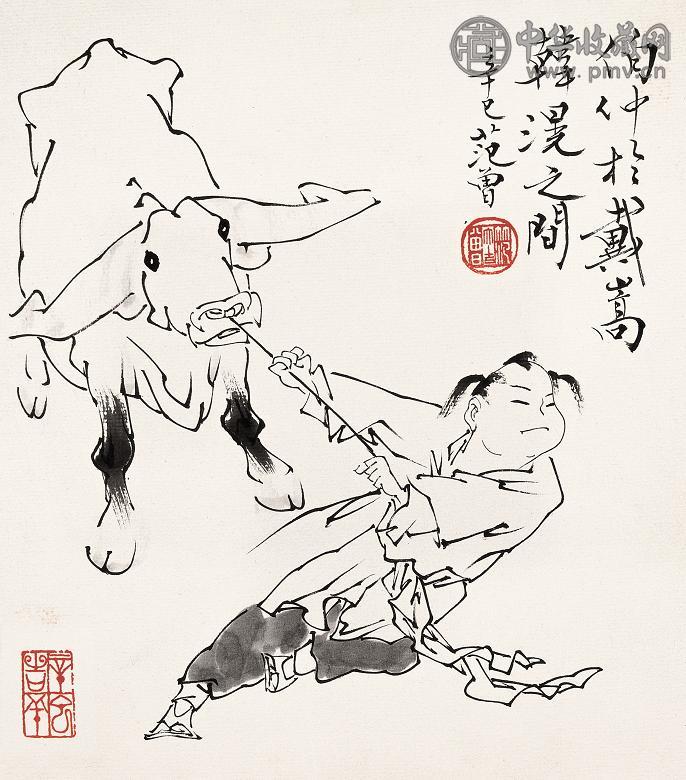 中华收藏网
www.pmv.cn
伯仲於戴嵩
韓滉之間
辛巳范曾